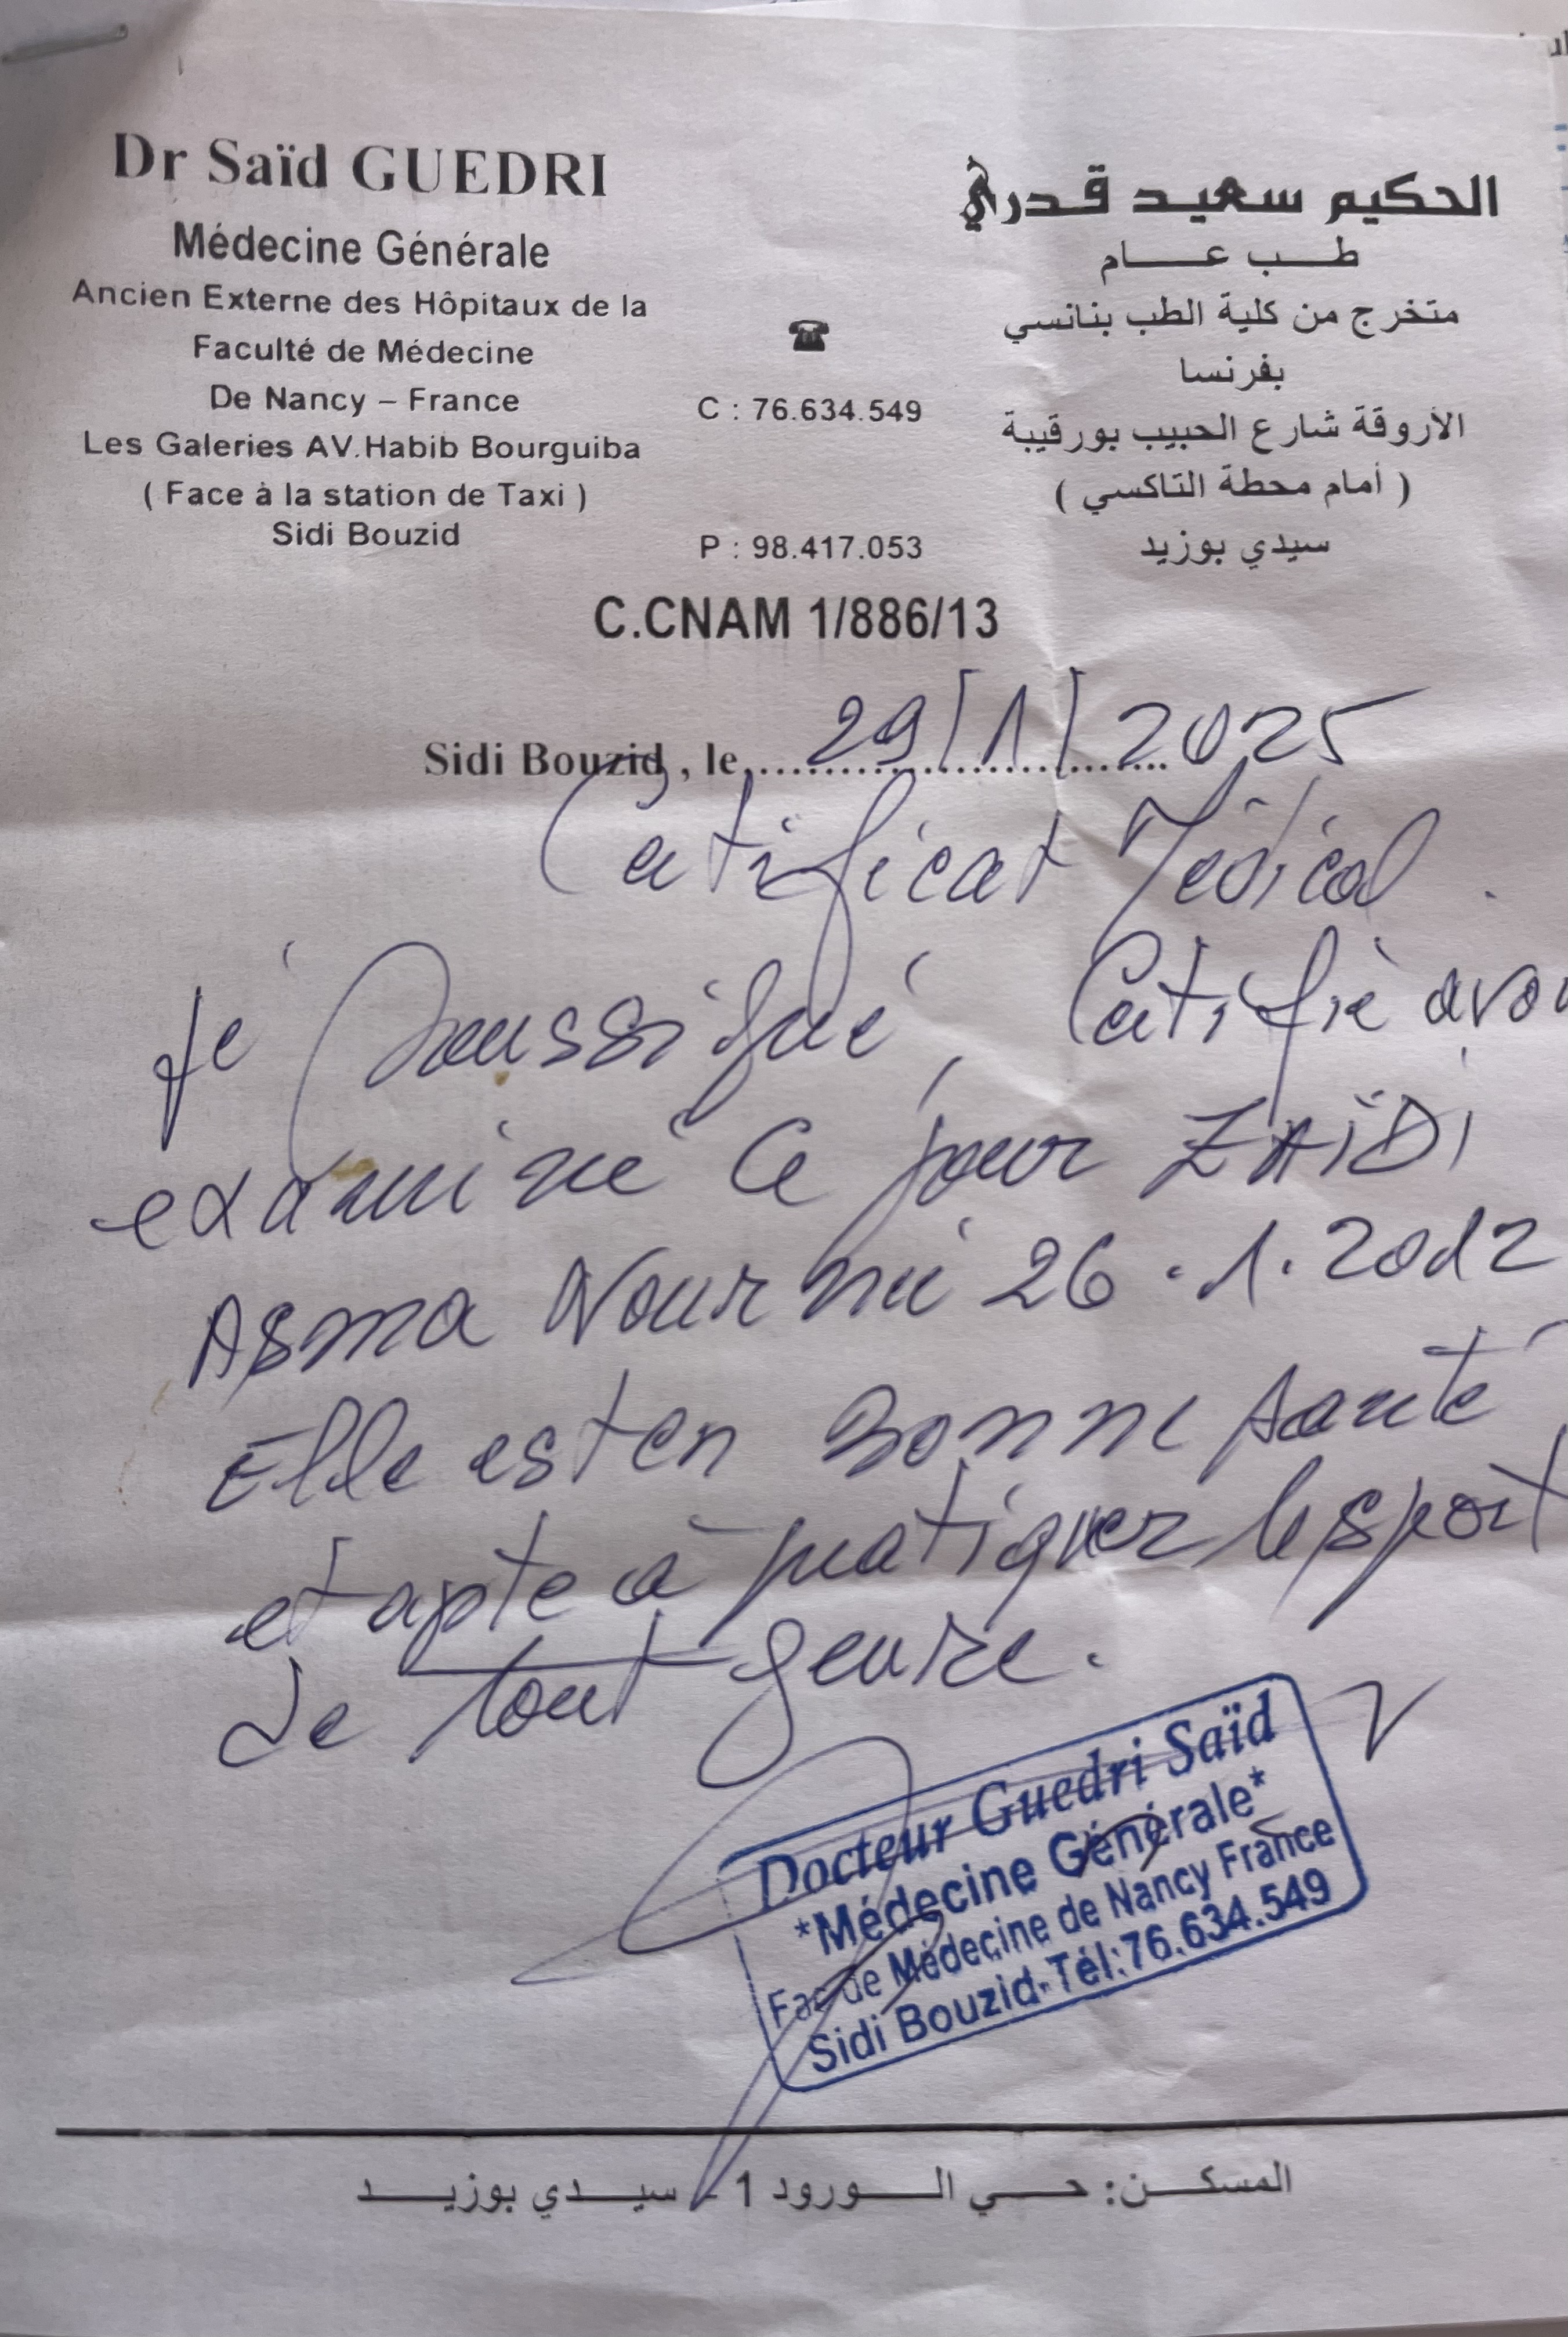 Dr Saïd GUEDRI
Médecine Générale
Ancien Externe des Hôpitaux de la
Faculté de Médecine
De Nancy – France
Les Galeries AV.Habib Bourguiba
( Face à la station de Taxi )
Sidi Bouzid
☎
C : 76.634.549
P : 98.417.053
الحكيم سعيد قدري
طب عام
متخرج من كلية الطب بنانسي
بفرنسا
الأروقة شارع الحبيب بورقيبة
( أمام محطة التاكسي )
سيدي بوزيد
C.CNAM 1/886/13
Sidi Bouzid , le 29/1/2025
Certificat Médical
Je soussigné, Certifie avoi
examiné ce jour ZAÏDI
Asma Nour née 26.1.2012
Elle est en Bonne santé
et apte à pratiquer le sport
de tout genre.
Docteur Guedri Saïd
*Médecine Générale*
Fac de Médecine de Nancy France
Sidi Bouzid-Tél:76.634.549
المسكن: حي الورود 1 - سيدي بوزيد